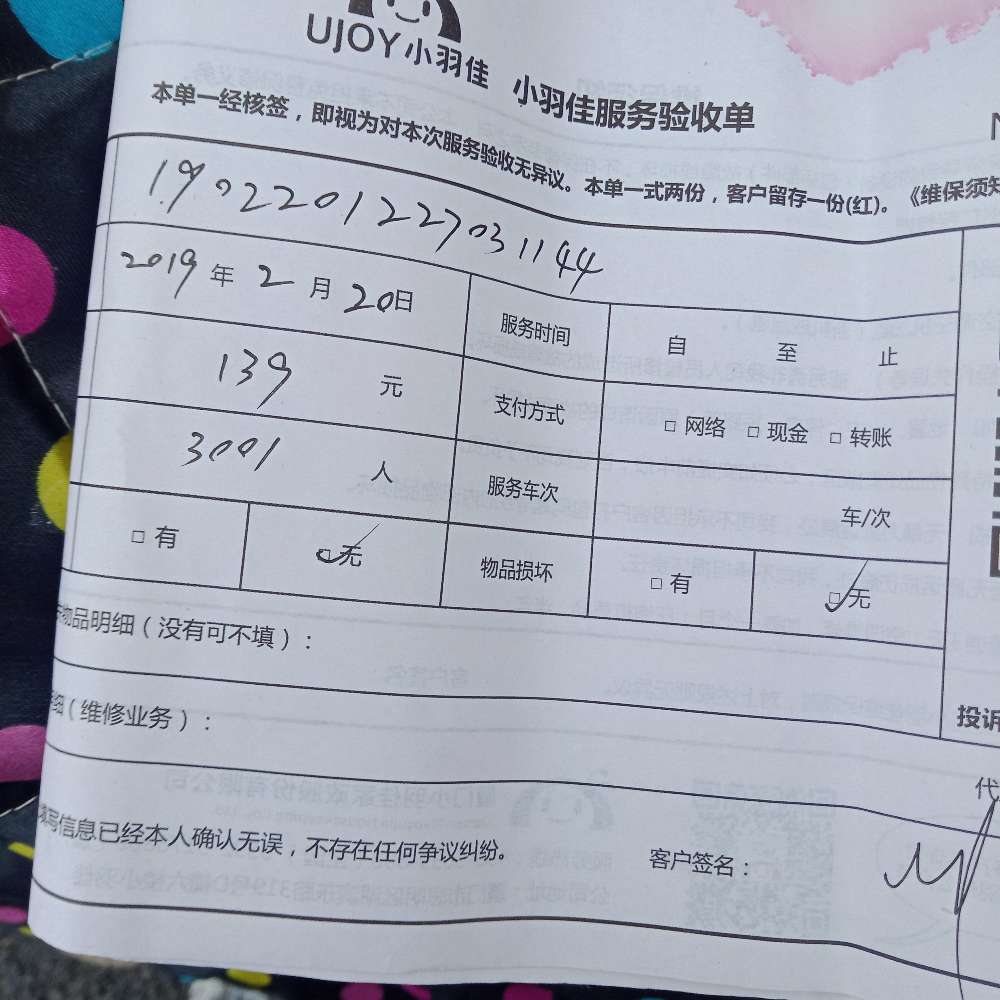 UJOY小羽佳 小羽佳服务验收单
本单一经核签，即视为对本次服务验收无异议。本单一式两份，客户留存一份(红)。《维保须知
1902201227031144
2019年2月20日 服务时间 自 至 止
139 元 支付方式 □网络 □现金 □转账
3001 人 服务车次 车/次
□有 □无 物品损坏 □有 □无
物品明细（没有可不填）：
细（维修业务）：
投诉
代
填写信息已经本人确认无误，不存在任何争议纠纷。 客户签名：